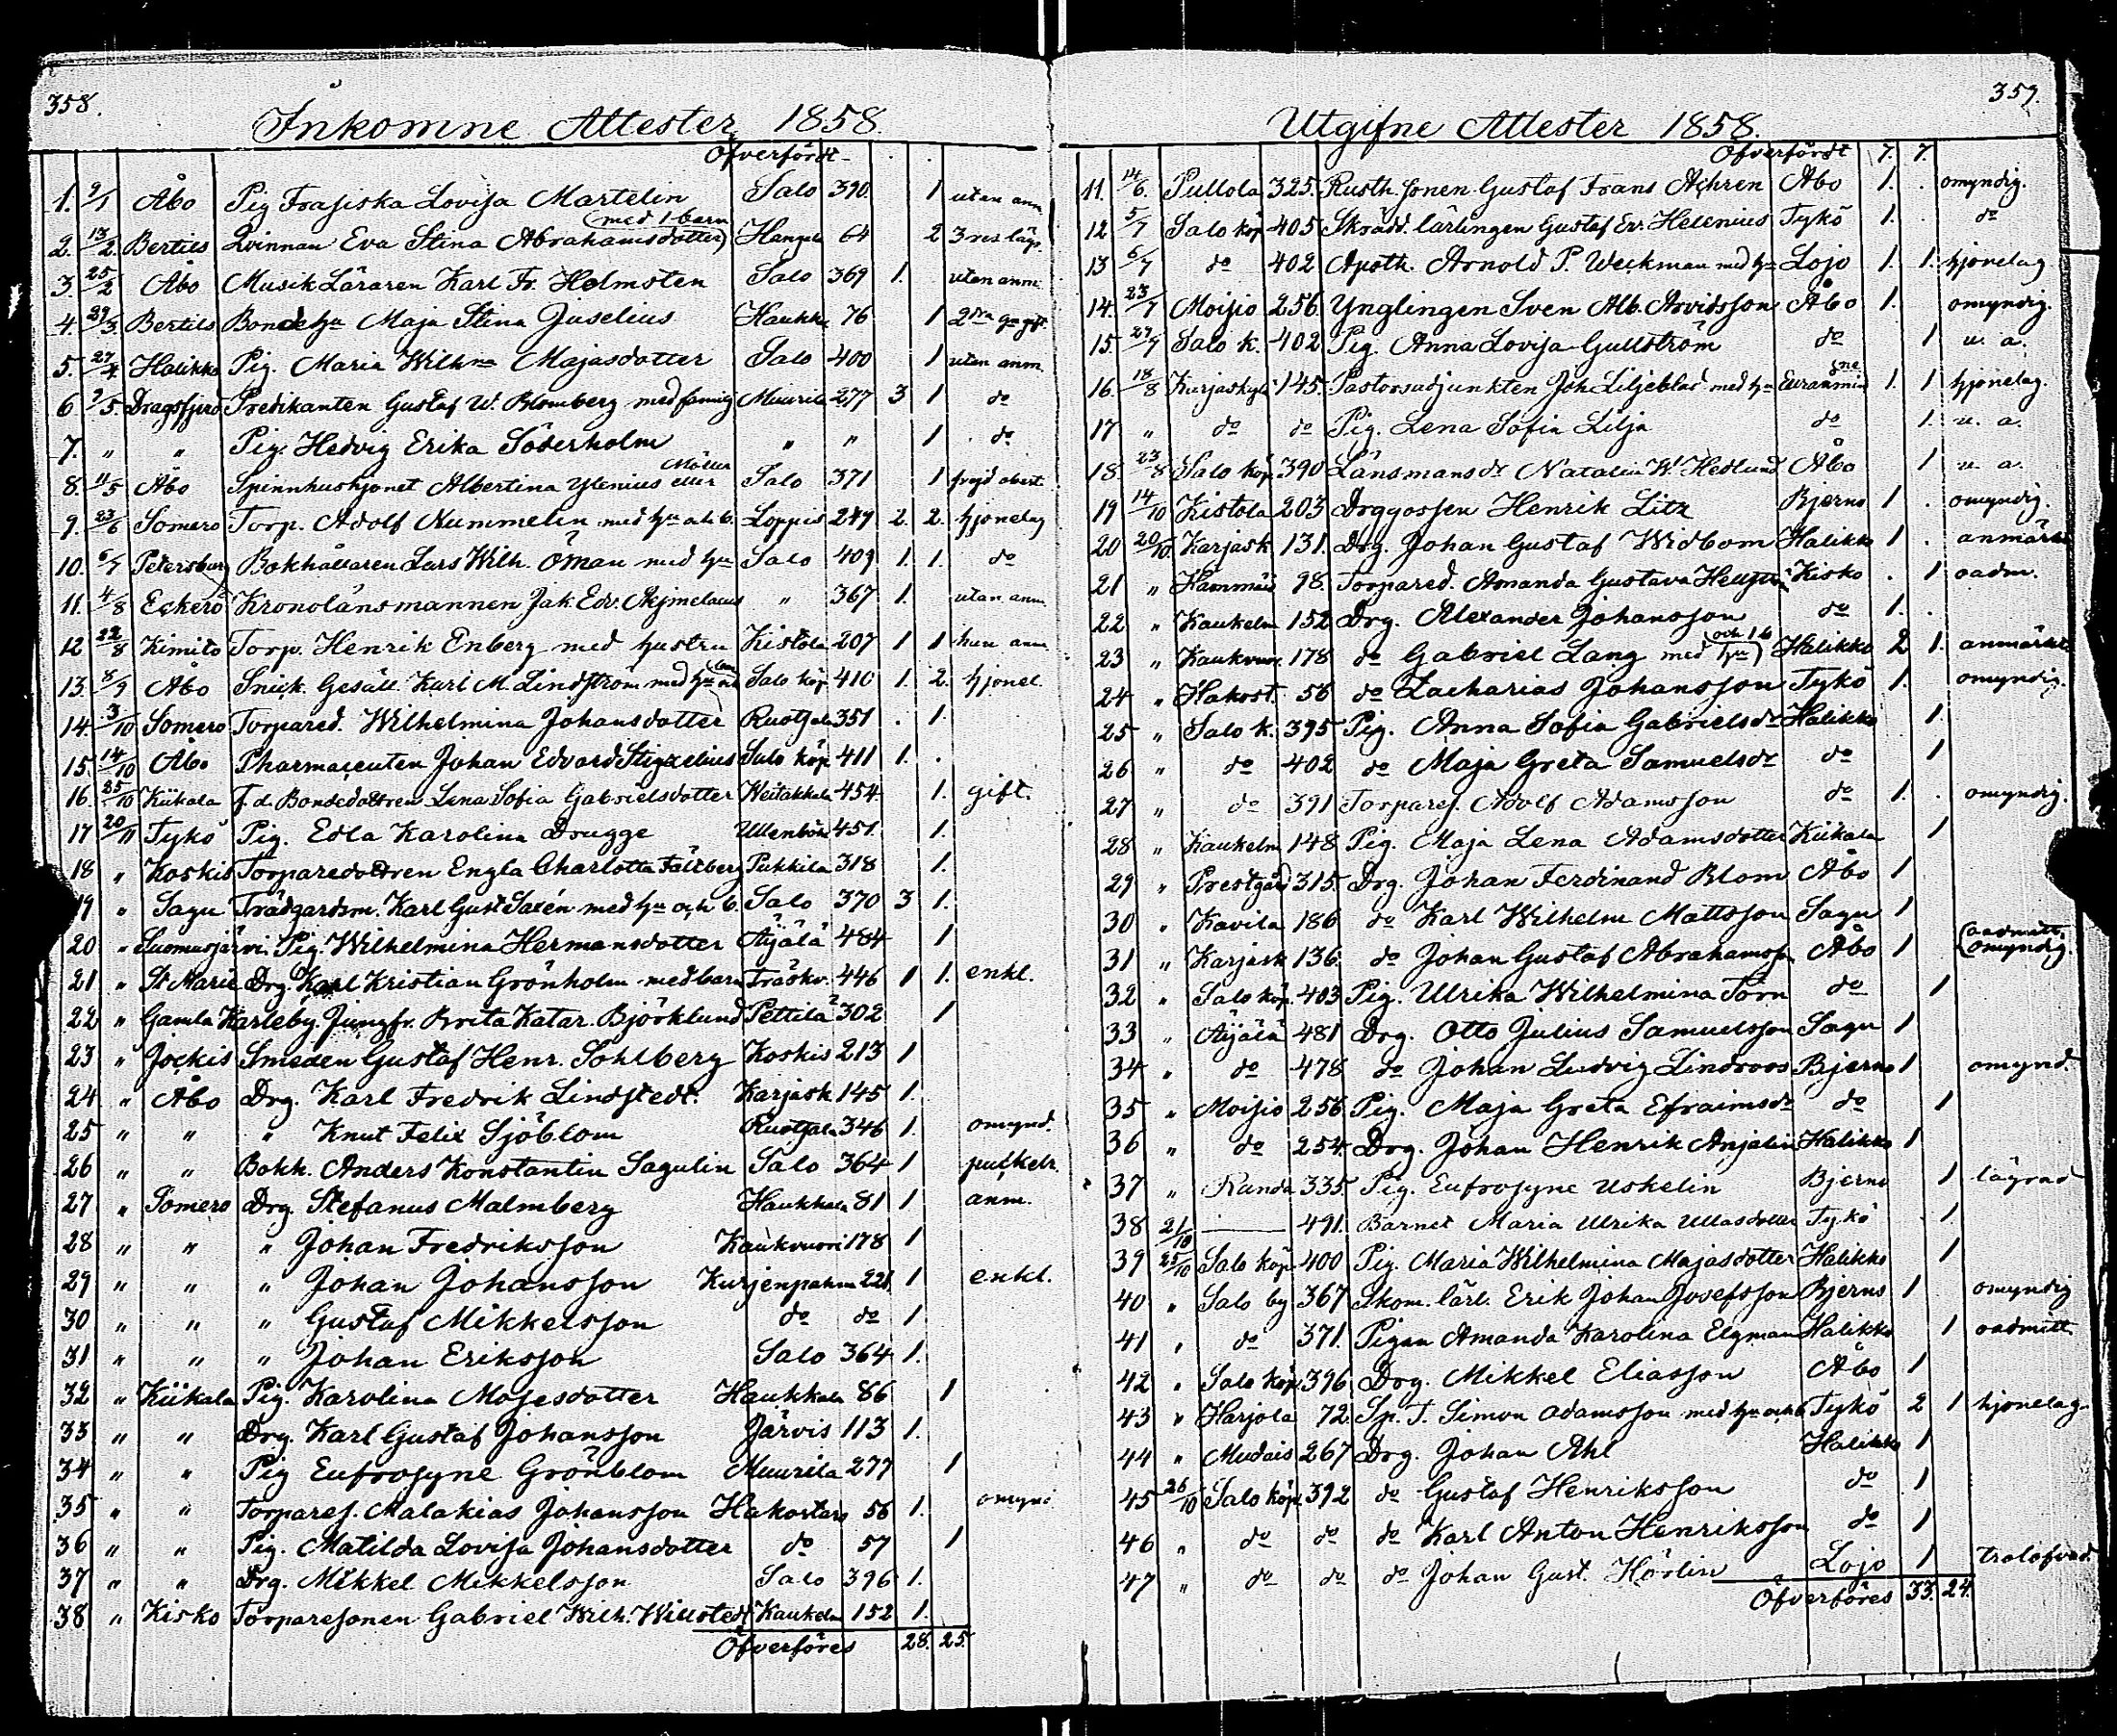 358.
Inkomne Attester 1858.
Öfverfördt - . .
1. 9/1 Åbo Pig Frasiska Lovisa Martelin Salo 390. 1 utan anm
2. 13/2. Bertils Qvinnan Eva Stina Abrahamsdotter (med 1 barn) 64 2 3 res läg
3. 25/2 Åbo Musik Läraren Karl Fr. Holmsten Salo 369 1. utan anm.
4. 29/3 Bertils Bondehu Maja Stina Juselius Haukka 76 1 2dra ggn gift
5. 27/4 Halikko Pig. Maria Wilhna Majasdotter Salo 400 1 utan anm.
6 /5. Dragsfjerd Predikanten Gustaf W. Blomberg med familj Muurila 277 3 1 do
7. " " Pig. Hedvig Erika Söderholm " " 1 do
8. 11/5 Åbo Spinnhushjonet Albertina Ylenius eller Möller Salo 371 1
9. 23/6 Somero Torp. Adolf Nummelin med hu och b. Loppis 249 2. 2. hjonelag
10. 6/7 Petersburg Bokhållaren Lars Wilh. Öman med hu Salo 409 1. 1. do
11. 4/8 Eckerö Kronolänsmannen Jak. Edv. " 367 1. utan anm.
12 22/8 Kimito Torp. Henrik Enberg med hustru Kistola 207 1 1 hun anm
13. 8/9 Åbo Snick. Gesäll. Karl M. Lindström med hu och barn Salo köp 410 1. 2. hjonel.
14. 3/10 Somero Torpared. Wilhelmina Johansdotter Ruotsala 351 . 1.
15. 14/10 Åbo Pharmaceuten Johan Edvard Stigzelius Salo köp 411 1. .
16. 25/10 Kiikala f.d. Bondedottren Lena Sofia Gabrielsdotter Weitakkala 454. 1. gift.
17 20/11 Tykö Pig. Edla Karolina Drugge 451. 1.
18 " Koskis Torparedottren Engla Charlotta Fältberg Pukkila 318 1.
19 " Sagu Trädgardsm. Karl Gust Saxén med hu och b. Salo 370 3 1.
20 " Suomusjärvi. Pig. Wilhelmina Hermansdotter Äijälä 484 1
21 " St Marie Drg. Karl Kristian Grönholm med barn Träskv. 446 1 1. enkl.
22 " Gamla Karleby. Jungfr. Brita Katar. Björklund Pettilä 302 1
23 " Jockis Smeden Gustaf Henr. Sohlberg Koskis 213 1
24 " Åbo Drg. Karl Fredrik Lindstedt. Karjask 145 1.
25 " " " Knut Felix Sjöblom Ruotsala 346 1. omynd.
26 " " Bokh. Anders Konstantin Sagulin Salo 364 1
27 " Somero Drg. Stefanus Malmberg Haukkala 81 1 anm.
28 " " " Johan Fredriksson Kaukvuori 178 1
29 " " " Johan Johansson Kurjenpahna 221. 1 enkl.
30 " " " Gustaf Mikkelsson do do 1
31 " " " Johan Eriksson Salo 364 1.
32 " Kiikala Pig. Karolina Mosesdotter Haukkala 86 1
33 " " Drg. Karl Gustaf Johansson Järvis 113 1.
34 " " Pig Eufrosyne Grönblom Muurila 277 1
35 " " Torpares. Malakias Johansson Hakostaro 56 1. omynd
36 " " Pig. Matilda Lovisa Johansdotter do 57 1
37 " " Drg. Mikkel Mikkelsson Salo 396 1.
38 " Kisko Torparesonen Gabriel Wilh. Willstedt Kaukelm 152 1.
Öfverföres 28. 25.
359.
Utgifne Attester 1858.
Öfverfördt 7. 7.
11. 14/6. Pullola 325. Rusth. sonen Gustaf Frans Achren Åbo 1. . omyndig.
12 5/7 Salo köp 405 Skrädd. lärlingen Gustaf Ev. Helenius Tykö 1. do
13 6/7 do 402 Apoth. Arnold P. Weckman med hu Lojo 1. 1. hjonelag
14. 23/7 Moisio 256. Ynglingen Sven Alb. Arvidsson Åbo 1. omyndig.
15. 27/7 Salo k. 402 Pig. Anna Lovisa Gullström do 1 u. a.
16. 18/8 Karjaskylä 145. Pastorsadjunkten Joh. Liljeblad med hu Euraåminne 1. 1 hjonelag.
17 " do do Pig. Lena Sofia Lilja do 1. u. a.
18. 23/8 Salo köp 390 Länsmansdr Natalia W. Hedlund Åbo 1 u. a.
19 14/10 Kistola 203 Drggossen Henrik Litz Bjerno 1 . omyndig.
20 20/10 Karjask. 131. Drg. Johan Gustaf Widbom Halikko 1 . anmärkt
21 " 98. Torpared. Amanda Gustava Kisko . 1 oadm.
22 " Kaukelm 152 Drg. Alexander Johansson do 1. .
23 " Kaukvuori 178 do Gabriel Lang med hu (och 1 b) Halikko 2 1. anmärkt
24 " Hakost. 56 do Zacharias Johansson Tykö 1. omyndig.
25 " Salo k. 395 Pig. Anna Sofia Gabrielsdr Halikko 1.
26 " do 402 do Maja Greta Samuelsdr do 1
27 " do 391 Torpares. Adolf Adamsson do 1. . omyndig.
28 " Kaukelm 148 Pig. Maja Lena Adamsdotter Kiikala 1
29 " Prestgård 315. Drg. Johan Ferdinand Blom Åbo 1
30 " Kavila 186 do Karl Wilhelm Mattsson Sagu 1
31 " Karjask 136. do Johan Gustaf Abrahamsson Åbo 1 (oadmitt. omyndig.
32 " Salo köp. 403 Pig. Ulrika Wilhelmina Törn do 1
33 " Äijälä 481 Drg. Otto Julius Samuelsson Sagu 1
34 " do 478 do Johan Ludvig Lindroos Bjerno 1 omynd.
35 " Moisio 256 Pig. Maja Greta Efraimsdr do 1
36 " do 254. Drg. Johan Henrik Anjalin Halikko 1
37 " Randa 335. Pig. Eufrosyne Uskelin Bjerno 1 lägrad
38 21/10 — 491. Barnet Maria Ulrika Ullasdotter Tykö 1.
39 25/10 Salo köp 400 Pig. Maria Wilhelmina Majasdotter Halikko 1
40 " Salo by 367 Skom. lärl. Erik Johan Josefsson Bjerno 1 omyndig
41 " do 371. Pigan Amanda Karolina Elgman Halikko 1 oadmitt.
42 " Salo köp. 396 Drg. Mikkel Eliasson Åbo 1
43 " Harjola 72. Sp. T. Simon Adamsson med hu och b Tykö 2 1 hjonelag.
44 " Mudais 267 Drg. Johan Ahl Halikko 1
45 26/10 Salo köp. 392 do Gustaf Henriksson do 1
46 " do do do Karl Anton Henriksson do 1
47 " do do do Johan Gust. Hörlin Lojo 1 trolofvad.
Öfverföres 33. 24.